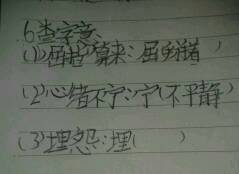 6查字意
(1)屈指算来:屈(弯着)
(2)心绪不宁:宁(不平静)
(3)埋怨:埋( )